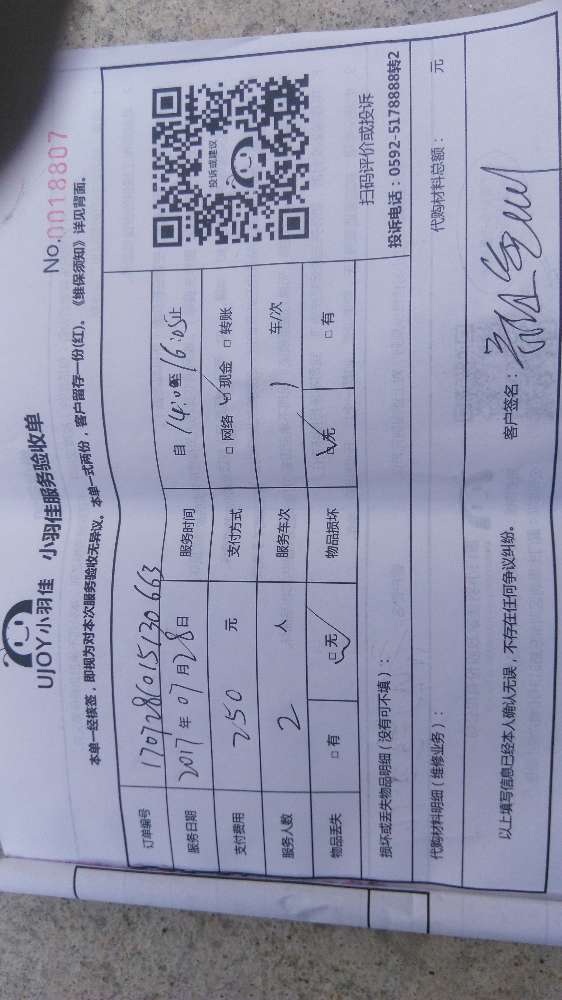 UJOY小羽佳 小羽佳服务验收单
No.0018807
本单一经核签，即视为对本次服务验收无异议。本单一式两份，客户留存一份(红)。《维保须知》详见背面。
订单编号 1707281015130663
服务日期 2017年07月28日 服务时间 自14:0至16:05止
支付费用 250元 支付方式 □网络 □现金 □转账
服务人数 2人 服务车次 1车/次
物品丢失 □有 □无 物品损坏 □无 □有
投诉或建议
扫码评价或投诉
投诉电话：0592-5178888转2
损坏或丢失物品明细（没有可不填）：
代购材料明细（维修业务）： 代购材料总额： 元
以上填写信息已经本人确认无误，不存在任何争议纠纷。 客户签名：